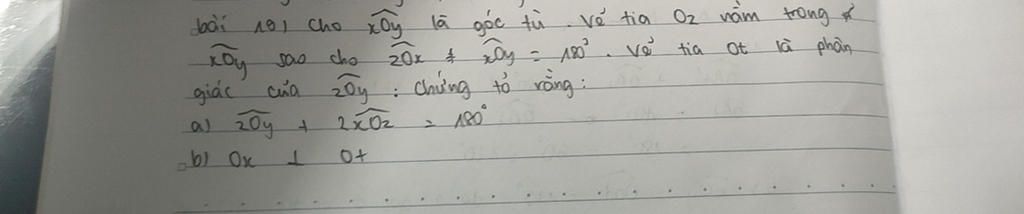 bài 18) Cho xOy là góc tù. Vẽ tia Oz nằm trong
xOy sao cho zOx + xOy = 180°. Vẽ tia Ot là phân
giác của zOy : Chứng tỏ rằng:
a) zOy + 2xOz = 180°
b) Ox ⊥ Ot